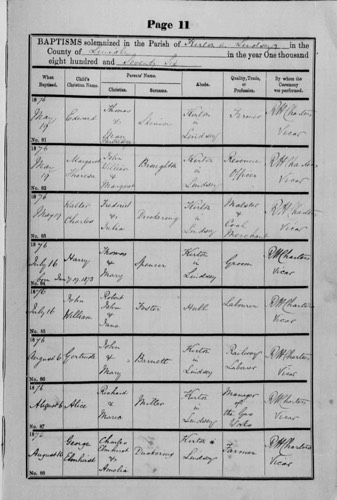 Page 11
BAPTISMS solemnized in the Parish of Kirton in Lindsey in the
County of Lincoln in the year One thousand
eight hundred and Seventy Six
When Baptized. Child's Christian Name. Parents' Name. Abode. Quality, Trade, or Profession. By whom the Ceremony was performed.
Christian. Surname.
1876 May 19 Edward Thomas & Kirton in Lindsey Farmer R W Charteris Vicar
No. 81
1876 May 19 Margaret Therese John William & Margaret Broughton Kirton in Lindsey Revenue Officer R W Charteris Vicar
No. 82
1876 May Walter Charles Fredrick & Julia Duckering Kirton in Lindsey Maltster & Coal Merchant R W Charteris Vicar
No. 83
1876 July 16 born 1873 Harry Thomas Mary Spencer Kirton in Lindsey Groom R W Charteris Vicar
No. 84
1876 July 16 John William Robert John & Jane Foster Hull Labourer R W Charteris Vicar
No. 85
1876 August 6 Gertrude John & Mary Barnett Kirton in Lindsey Railway Labourer R W Charteris Vicar
No. 86
1876 August 6 Alice Richard & Maria Miller Kirton in Lindsey Manager of the Gas Works R W Charteris Vicar
No. 87
1876 August George Charles & Amelia Duckering Kirton in Lindsey Farmer R W Charteris Vicar
No. 88